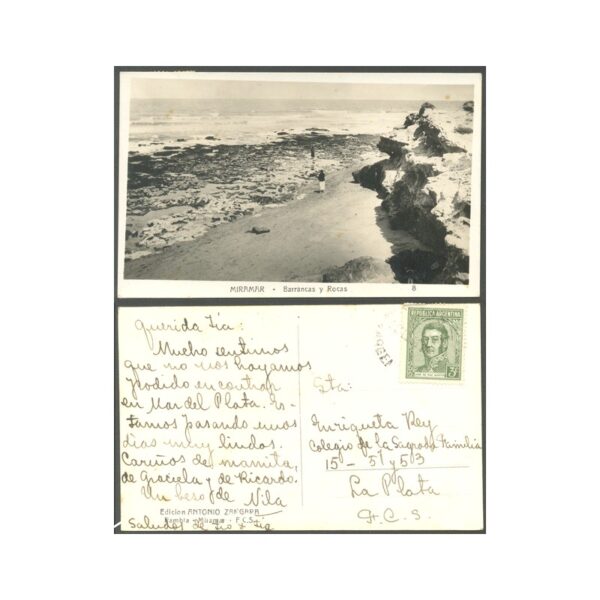 MIRAMAR - Barrancas y Rocas 8
Querida Tía:
Mucho sentimos
que no nos hayamos
podido encontrar
en Mar del Plata. Es-
tamos pasando unos
dias muy lindos.
Cariños de mamita,
de Graciela y de Ricardo.
Un beso de Nila
Edicion ANTONIO ZANGARA
Rambla - Miramar - F.C.S.
Saludos de Tio y Tia
REPUBLICA ARGENTINA
3
Sta:
Enriqueta Rey
Colegio de la Sagrada Familia
15 - 51 y 53
La Plata
F.C.S.